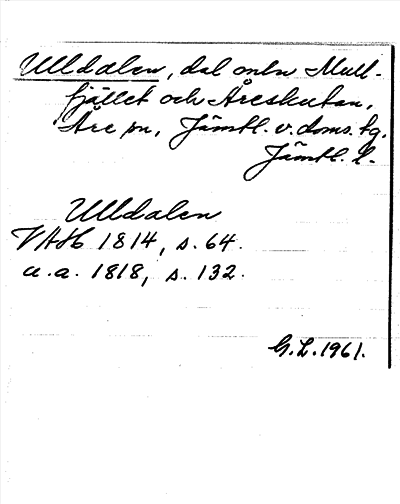 Ulldalen, dal mellan Mull-
fjället och Åreskutan,
Åre sn, Jämtl. v. doms. tg.
Jämtl. l.
Ulldalen
VAH 1814, s. 64.
u.a. 1818, s. 132.
G.L. 1961.